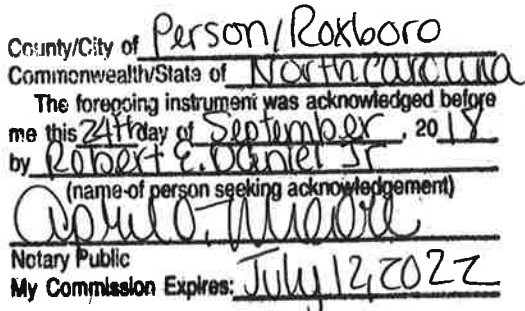 County/City of Person/Roxboro
Commonwealth/State of North Carolina
The foregoing instrument was acknowledged before
me this 24th day of September, 2018
by Robert E. Daniel Jr
(name of person seeking acknowledgement)
April O. Moore
Notary Public
My Commission Expires: July 12, 2022